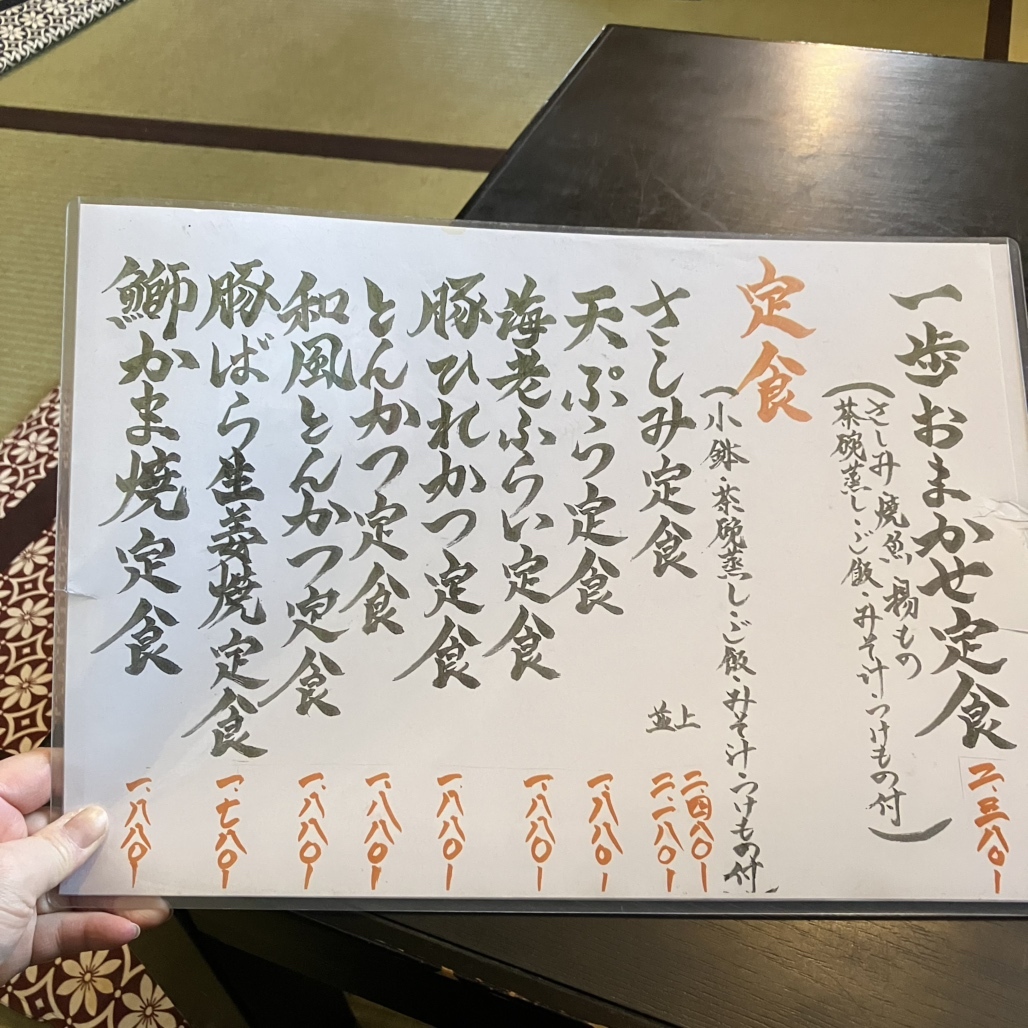 一歩おまかせ定食 二、三八〇ー
(さしみ・焼魚・揚もの
茶碗蒸し・ご飯・みそ汁・つけもの付)
定食
(小鉢・茶碗蒸し・ご飯・みそ汁・つけもの付)
さしみ定食 上 二、四八〇ー
並 二、一八〇ー
天ぷら定食 一、八八〇ー
海老ふらい定食 一、八八〇ー
豚ひれかつ定食 一、八八〇ー
とんかつ定食 一、八八〇ー
和風とんかつ定食 一、八八〇ー
豚ばら生姜焼定食 一、七八〇ー
鰤かま焼定食 一、八八〇ー